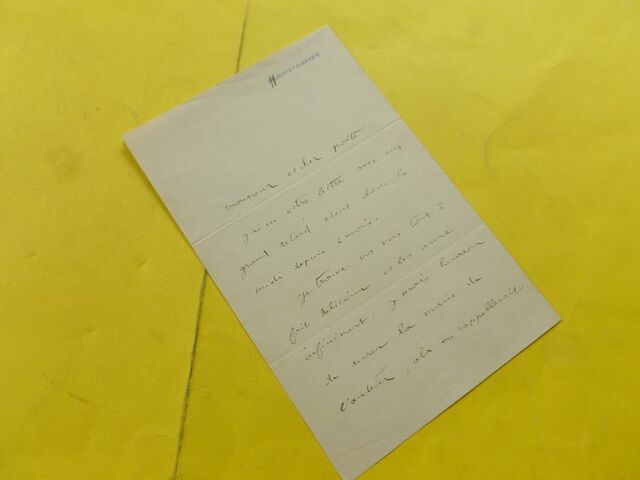 monsieur et cher poète
J'ai eu votre lettre avec un
grand retard étant dans le
midi depuis 2 mois.
Je trouve vos vers tout à
fait délicieux et les aime
infiniment. Je serai heureux
de serrer la main de
l'auteur, cela me rappellerait